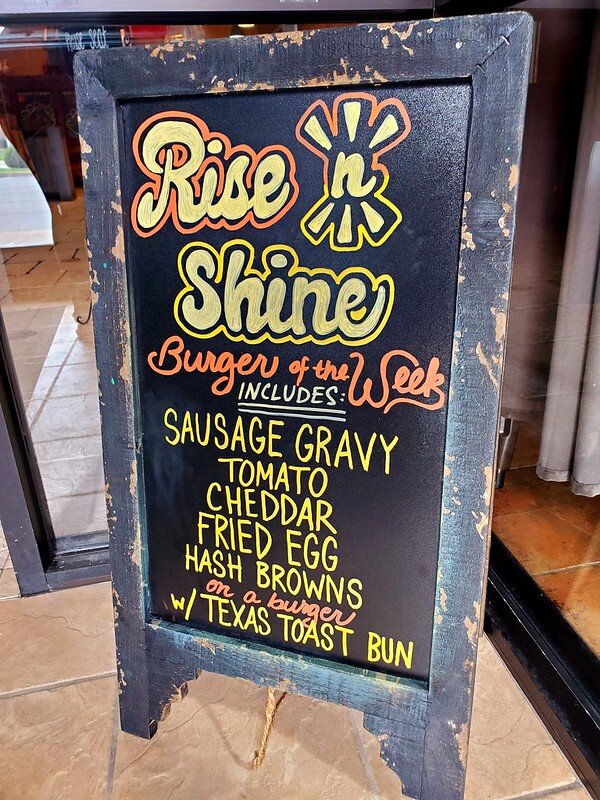 Rise 'n
Shine
Burger of the Week
INCLUDES:
SAUSAGE GRAVY
TOMATO
CHEDDAR
FRIED EGG
HASH BROWNS
on a burger
w/ TEXAS TOAST BUN